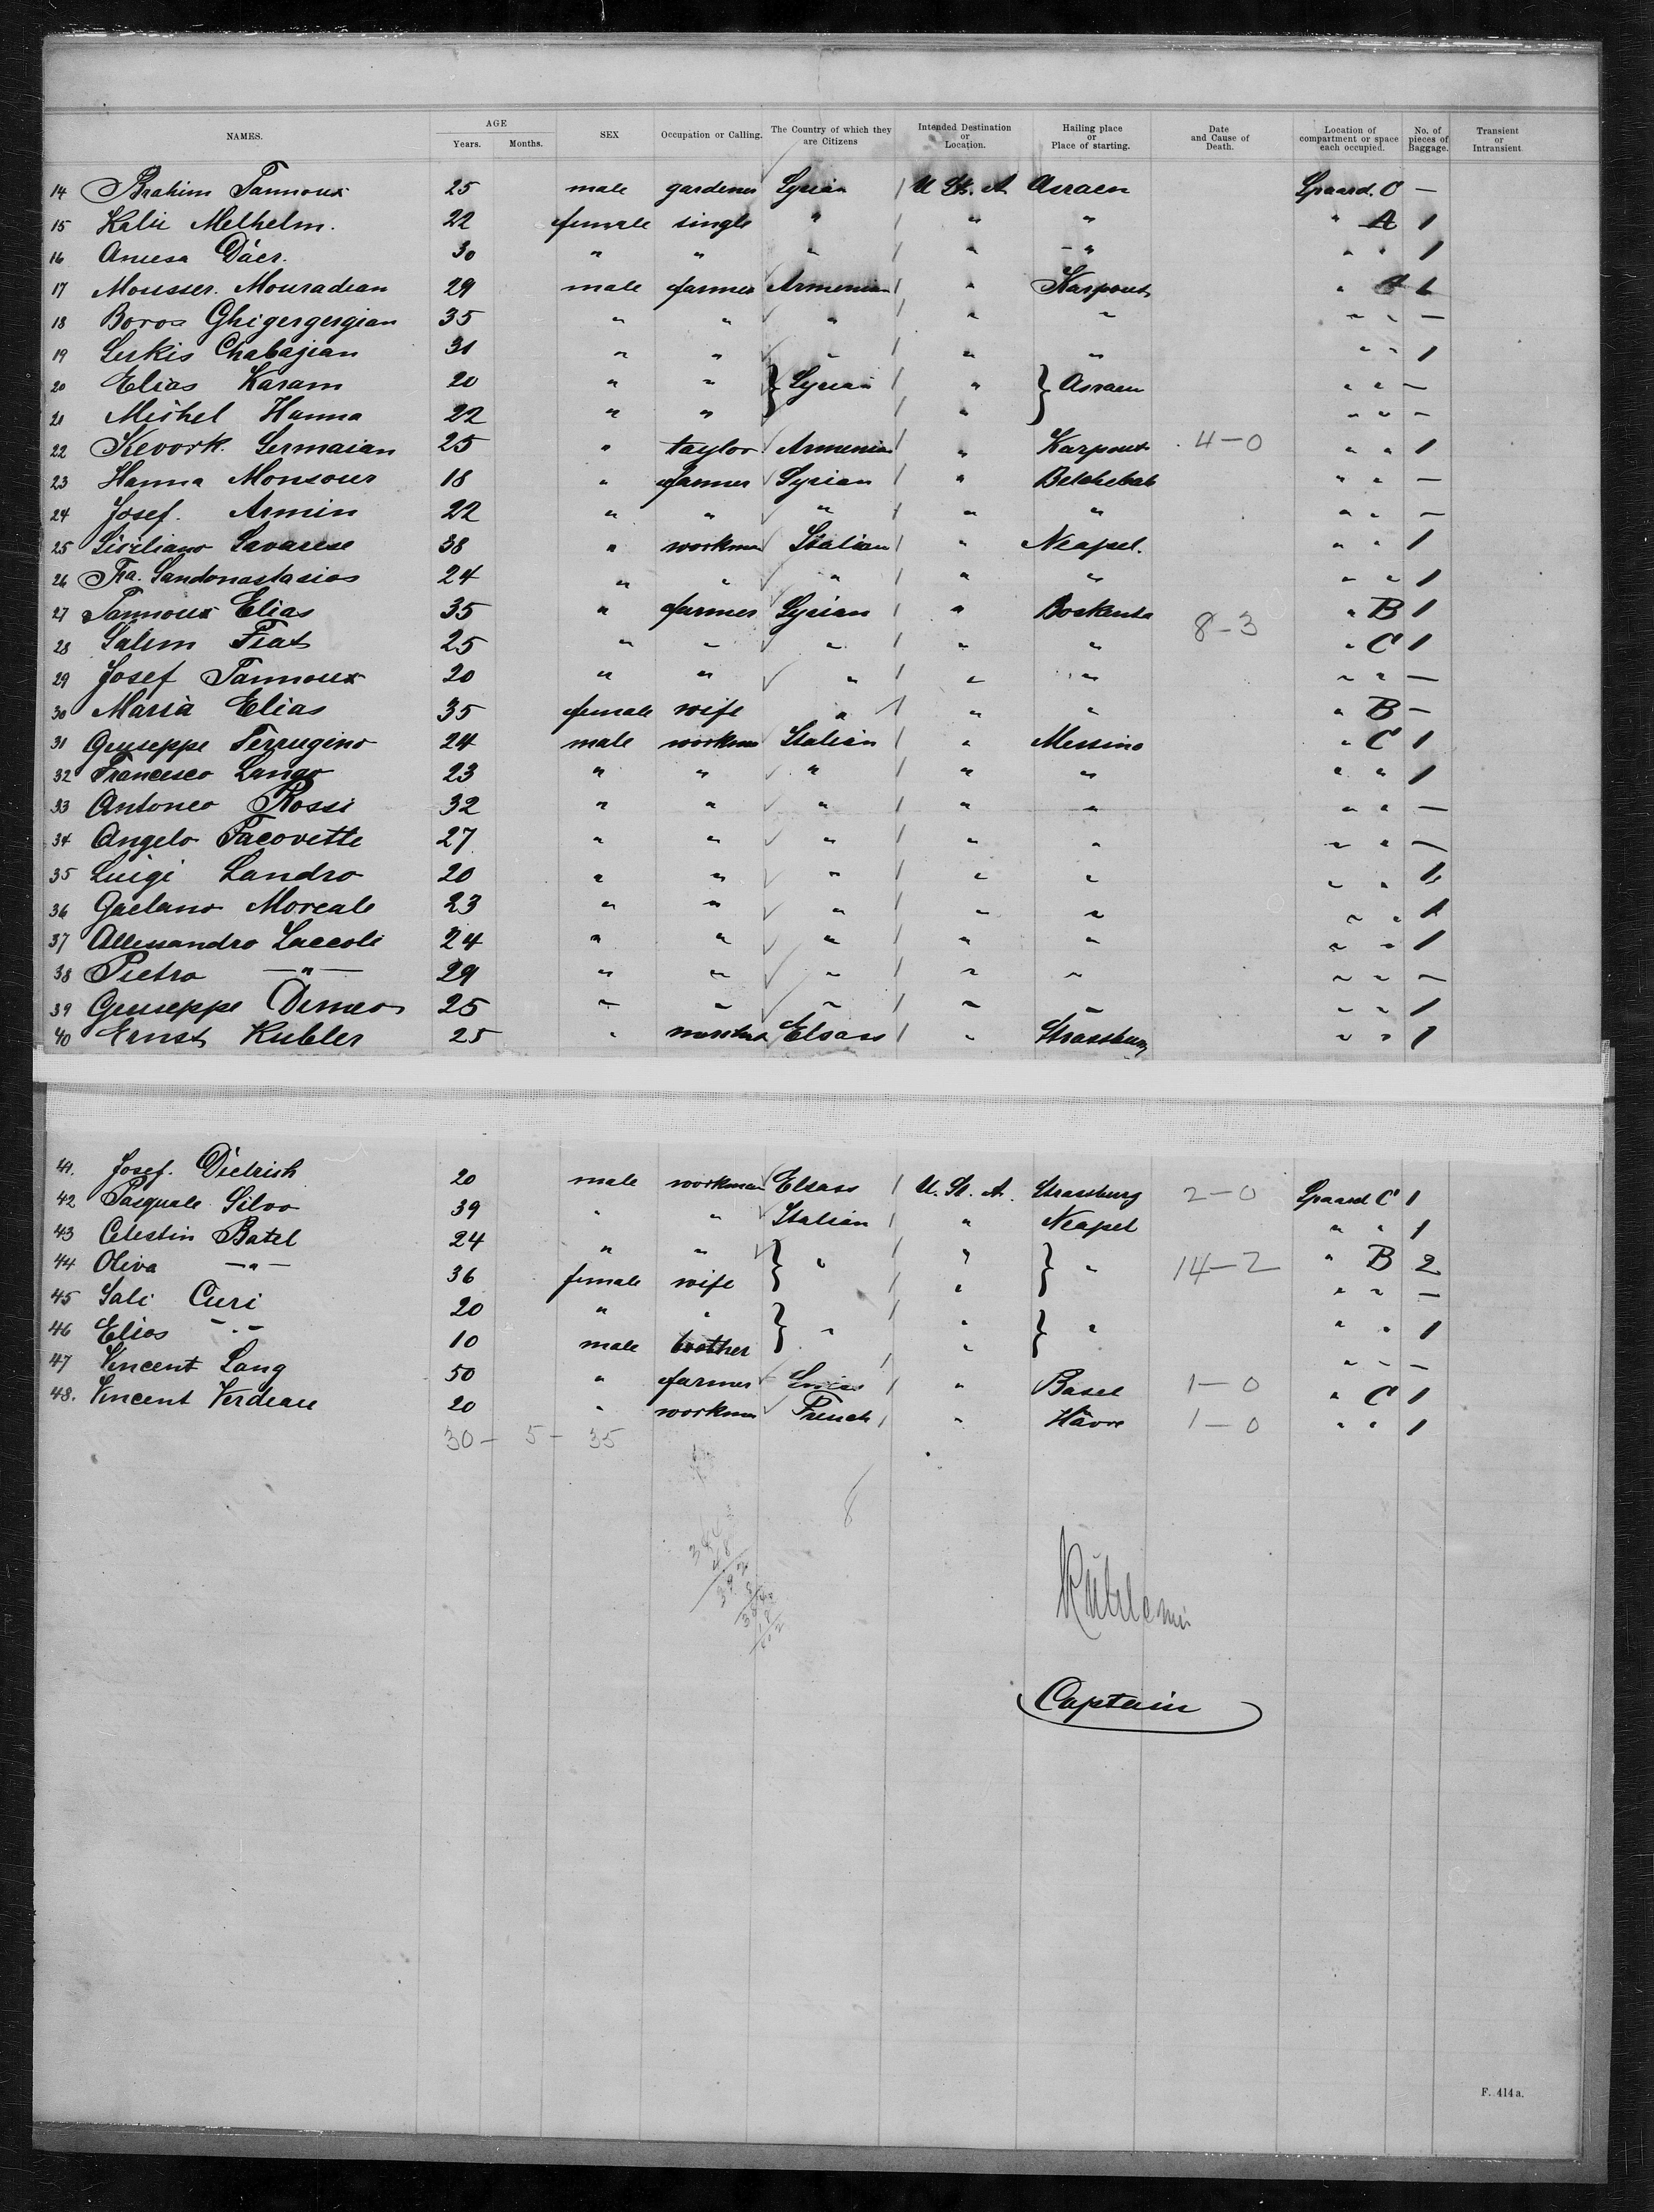 NAMES. AGE Years. Months. SEX Occupation or Calling. The Country of which they are Citizens Intended Destination or Location. Hailing place or Place of starting. Date and Cause of Death. Location of compartment or space each occupied. No. of pieces of Baggage. Transient or Intransient
14 Ibrahim Tannoux 25 male gardener Syrian U. St. A. Asraen C —
15 Melhelm. 22 female single " " " " A 1
16 Däer. 30 " " " " —" " " 1
17 Mouradean 29 male farmer Armenian " Karpout " 1
18 Boros Ghigergergian 35 " " " " " " " —
19 Serkis Chabajian 31 " " " " " " " 1
20 Elias Karam 20 " " } Syrian " } Asraen " " —
21 Mishel Hanna 22 " " " " " —
22 Kevork. Sermaian 25 " taylor Armenian " Karpout 4–0 " " 1
23 Hanna Monsour 18 " farmer Syrian " " " —
24 Josef. Armin 22 " " " " " " " —
25 Siciliano Savarese 38 " workman Italian " Neapel. " " 1
26 Fra. Sandonastasios 24 " " " " " " " 1
27 Tannoux Elias 35 " farmer Syrian " Boskenta " B 1
28 Salim Fiat 25 " " " " " 8–3 " C 1
29 Josef Tannoux 20 " " " " " " " —
30 Maria Elias 35 female wife " " " " B —
31 Giuseppe Ferrugino 24 male workman Italian " Messino " C 1
32 Francesco Longo 23 " " " " " " " 1
33 Antonio Rossi 32 " " " " " " " —
34 Angelo Tacovette 27 " " " " " " " —
35 Luigi Landro 20 " " " " " " " 1
36 Gaetano Moreale 23 " " " " " " " 1
37 Allessandro Laccoli 24 " " " " " " " 1
38 Pietro —"— 29 " " " " " " " —
39 Giuseppe Demeo 25 " " " " " " " 1
40 Ernst Kubler 25 " Elsass " Strassburg " " 1
41. Josef. Dietrich 20 male workman Elsass U. St. A. Strassburg 2–0 C 1
42 Pasquale Silvo 39 " " Italian " Neapel " " 1
43 Celestin Batel 24 " " } " " } " 14–2 " B 2
44 Oliva —"— 36 female wife " " " —
45 Sali Curi 20 " " } " " } " " " 1
46 Elias —"— 10 male brother " " " —
47 Vincent Lang 50 " farmer Swiss " Basel 1–0 " C 1
48. Vincent Verdeau 20 " workman French " Hâvre 1–0 " " 1
30 – 5 – 35
8
Captain
F. 414 a.